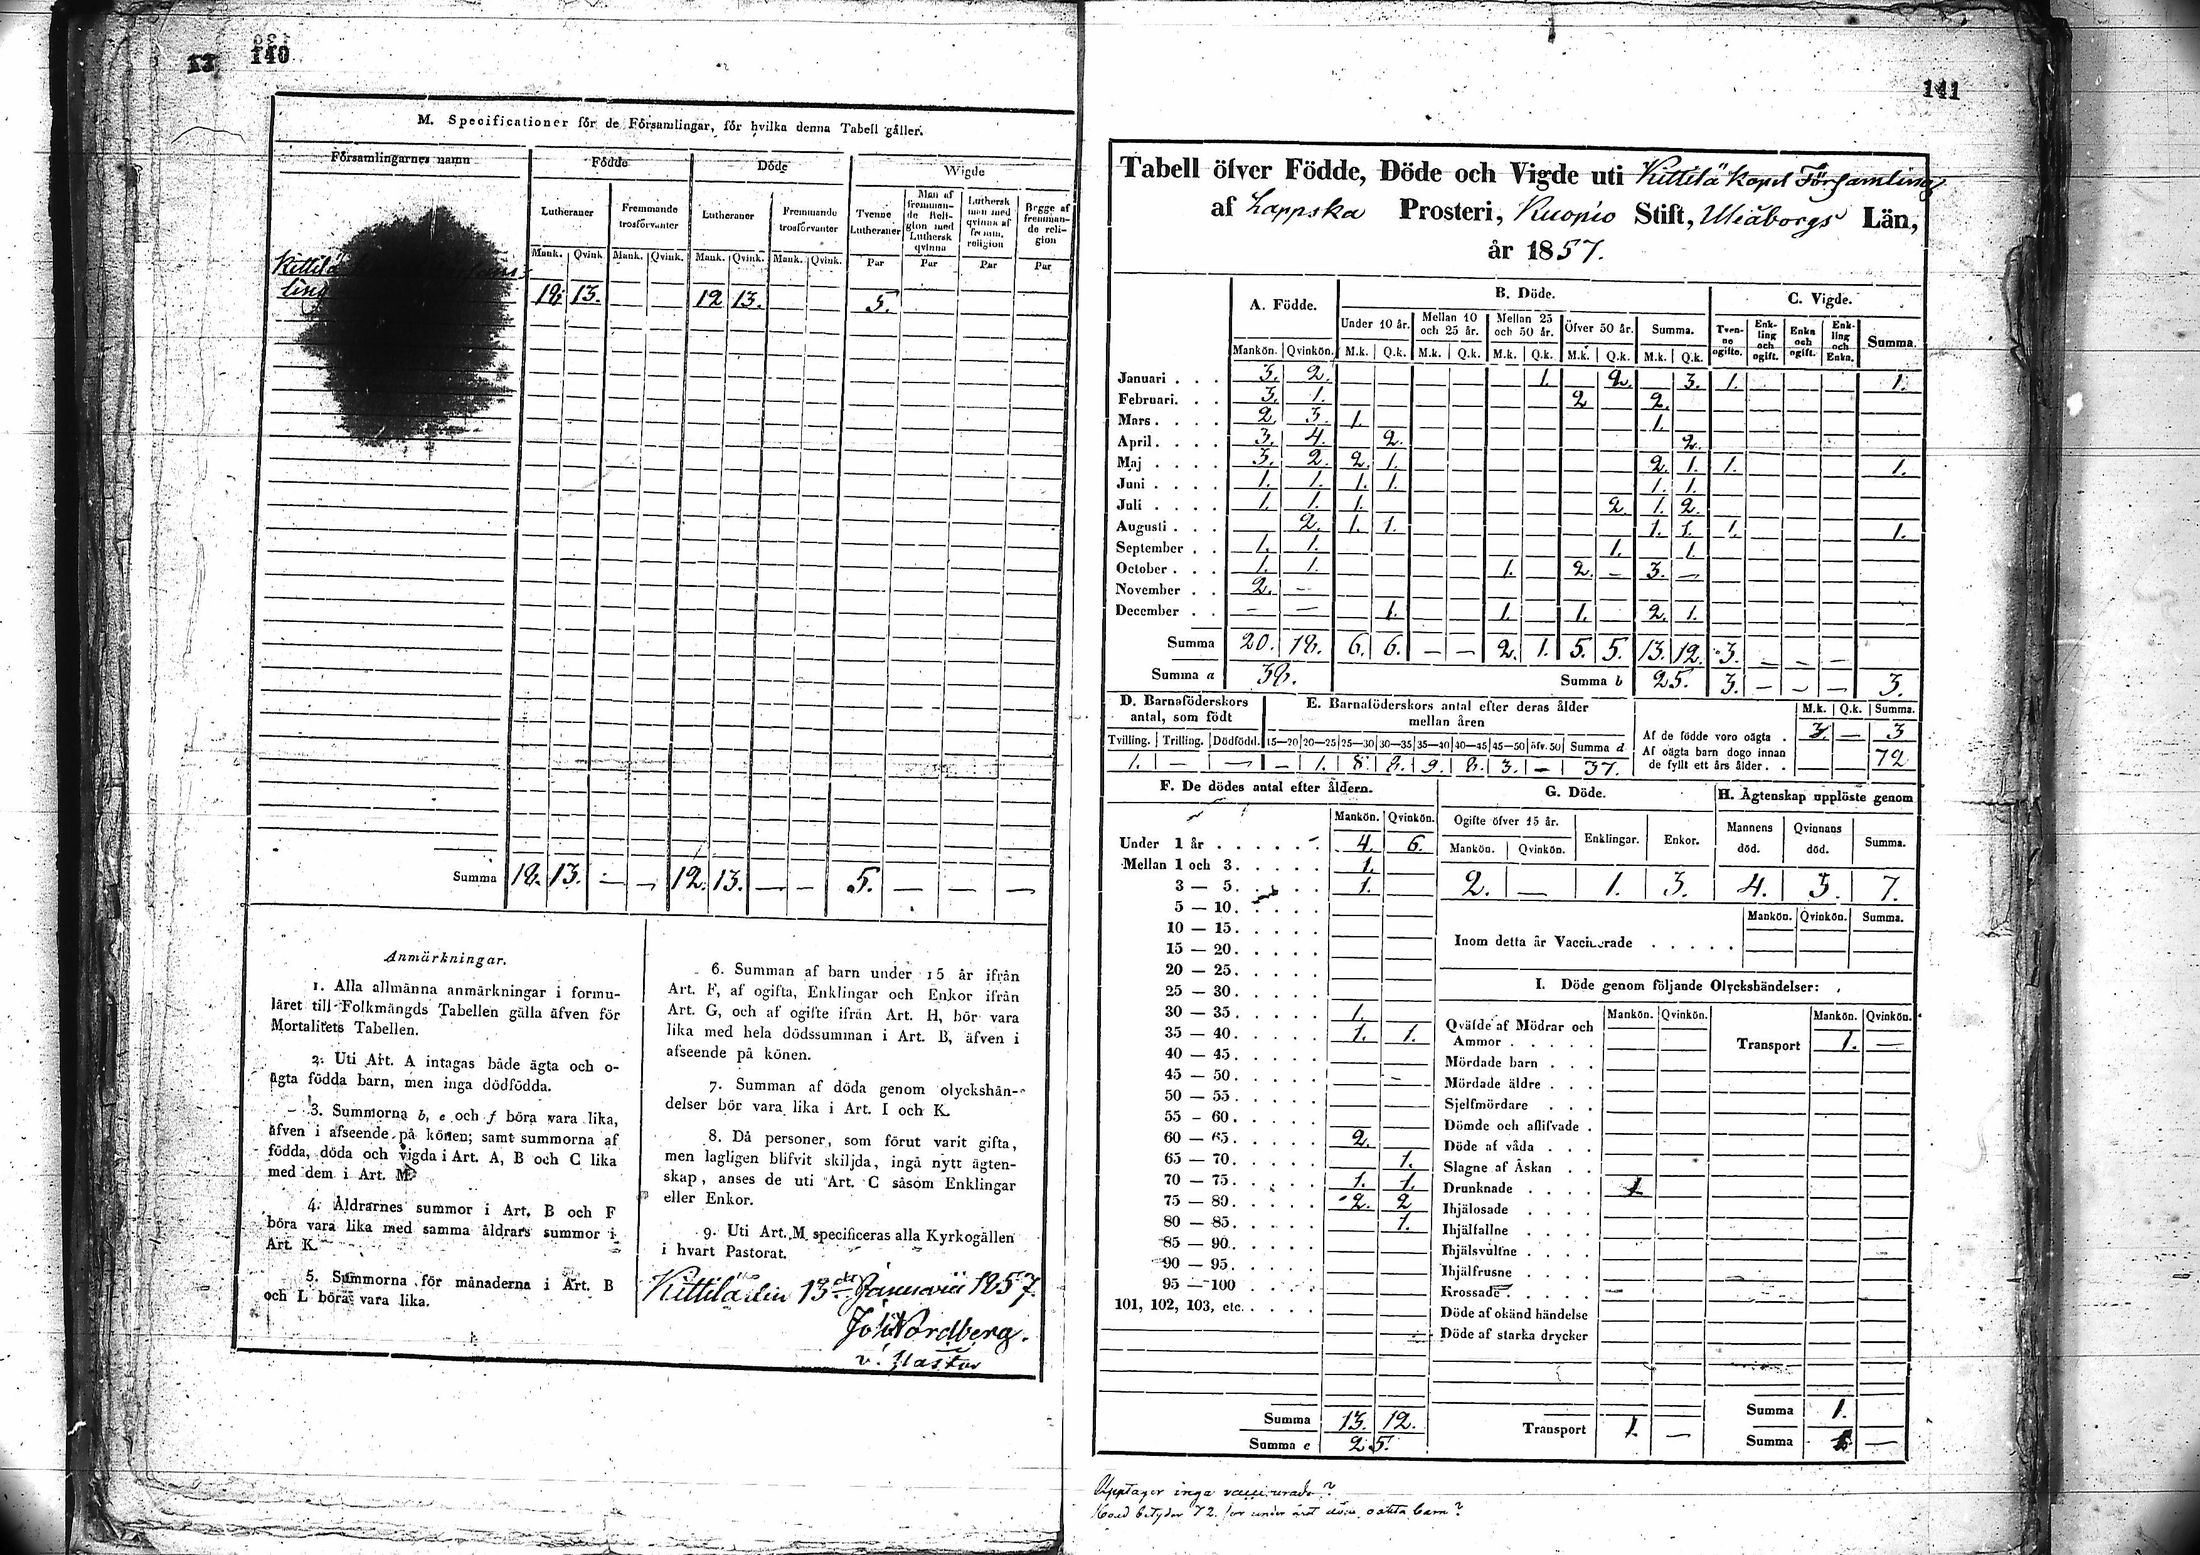 140
141
M. Specificationer för de Församlingar, för hvilka denna Tabell gäller.
Församlingarnes namn | Födde | Döde | Wigde
Lutheraner | Fremmande trosförvanter | Lutheraner | Fremmande trosförvanter | Tvenne Lutheraner | Man af fremmande Religion med Luthersk qvinna | Luthersk man med qvinna af fremm. religion | Begge af fremmande religion
Mank. | Qvink. | Mank. | Qvink. | Mank. | Qvink. | Mank. | Qvink. | Par | Par | Par | Par
Kittilä
ling 18. 13. 12 13. 5.
Summa 18. 13. — — 12. 13. — — 5. — — —
Anmärkningar.
1. Alla allmänna anmärkningar i formu-
läret till Folkmängds Tabellen gälla äfven för
Mortalitets Tabellen.
2. Uti Art. A intagas både ägta och o-
ägta födda barn, men inga dödfödda.
3. Summorna b, e och f böra vara lika,
äfven i afseende på könen; samt summorna af
födda, döda och vigda i Art. A, B och C lika
med dem i Art. M.
4. Åldrarnes summor i Art. B och F
böra vara lika med samma åldrars summor i
Art. K.
5. Summorna för månaderna i Art. B
och L böra vara lika.
6. Summan af barn under 15 år ifrån
Art. F, af ogifta, Enklingar och Enkor ifrån
Art. G, och af ogifte ifrån Art. H, bör vara
lika med hela dödssumman i Art. B, äfven i
afseende på könen.
7. Summan af döda genom olyckshän-
delser bör vara lika i Art. I och K.
8. Då personer, som förut varit gifta,
men lagligen blifvit skiljda, ingå nytt ägten-
skap, anses de uti Art. C såsom Enklingar
eller Enkor.
9. Uti Art. M specificeras alla Kyrkogällen
i hvart Pastorat.
Kittilä den 13de Januarii 1857.
Joh Nordberg.
v. Pastor
Tabell öfver Födde, Döde och Vigde uti Kittilä kapel Församling
af Lappska Prosteri, Kuopio Stift, Uleåborgs Län,
år 1857.
A. Födde. | B. Döde. | C. Vigde.
Under 10 år. | Mellan 10 och 25 år. | Mellan 25 och 50 år. | Öfver 50 år. | Summa. | Tvenne ogifte. | Enkling och ogift. | Enka och ogift. | Enkling och Enka. | Summa.
Mankön. | Qvinkön. | M.k. | Q.k. | M.k. | Q.k. | M.k. | Q.k. | M.k. | Q.k. | M.k. | Q.k.
Januari . . . 3. 2. 1. 2. 3. 1. 1.
Februari. . . 3. 1. 2 2.
Mars . . . . 2 3 1. 1.
April . . . . 3. 4. 2. 2.
Maj . . . . 3. 2. 2. 1. 2. 1. 1. 1.
Juni . . . . 1. 1. 1. 1. 1. 1.
Juli . . . . 1. 1. 1. 2 1. 2.
Augusti . . . 2. 1. 1. 1. 1. 1. 1.
September . . 1. 1. 1. 1.
October . . . 1. 1. 1. 2. — 3. —
November . . 2. —
December . . — — 1. 1. 1. 2. 1.
Summa 20. 18. 6. 6. — — 2. 1. 5. 5. 13. 12. 3. — — —
Summa a 38. Summa b 25. 3. — — — 3.
D. Barnaföderskors antal, som födt
Tvilling. | Trilling. | Dödfödd.
1. — —
E. Barnaföderskors antal efter deras ålder mellan åren
15—20 | 20—25 | 25—30 | 30—35 | 35—40 | 40—45 | 45—50 | öfv. 50 | Summa d
— 1. 8. 8. 9. 8. 3. — 37.
M.k. | Q.k. | Summa.
Af de födde voro oägta . 3. — 3
Af oägta barn dogo innan
de fyllt ett års ålder. . 72
F. De dödes antal efter åldern.
Mankön. | Qvinkön.
Under 1 år . . . . . . 4. 6.
Mellan 1 och 3. . . . . 1.
3 — 5. . . . . 1.
5 — 10. . . . .
10 — 15. . . . .
15 — 20. . . . .
20 — 25. . . . .
25 — 30. . . . .
30 — 35. . . . . 1.
35 — 40. . . . . 1. 1.
40 — 45. . . . .
45 — 50. . . . .
50 — 55. . . . .
55 - 60. . . . .
60 — 65. . . . . 2.
65 — 70. . . . . 1.
70 — 75. . . . . 1. 1.
75 — 80. . . . . 2. 2
80 — 85. . . . . 1.
85 — 90. . . . .
90 — 95. . . . .
95 — 100 . . . .
101, 102, 103, etc. . . . .
Summa 13. 12.
Summa e 25.
G. Döde.
Ogifte öfver 15 år. | Enklingar. | Enkor.
Mankön. | Qvinkön.
2. — 1. 3.
H. Ägtenskap upplöste genom
Mannens död. | Qvinnans död. | Summa.
4. 3. 7.
Mankön. | Qvinkön. | Summa.
Inom detta år Vaccinerade . . . . .
I. Döde genom följande Olyckshändelser:
Mankön. | Qvinkön. | Mankön. | Qvinkön.
Qväfde af Mödrar och
Ammor . . . . . Transport 1. —
Mördade barn . . .
Mördade äldre . . .
Sjelfmördare . . .
Dömde och aflifvade .
Döde af våda . . .
Slagne af Åskan . .
Drunknade . . . . 1
Ihjälosade . . . .
Ihjälfallne . . . .
Ihjälsvultne . . . .
Ihjälfrusne . . . .
Krossade . . . . .
Döde af okänd händelse
Döde af starka drycker
Summa 1.
Transport 1. — Summa 1. —
Upptager inga vaccinerade?